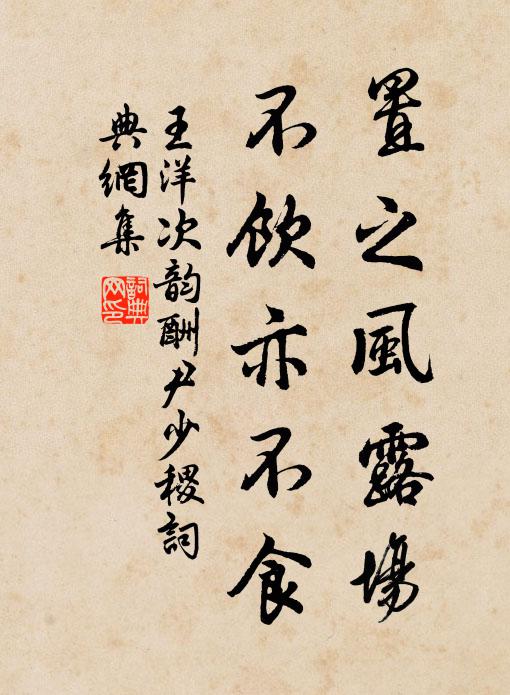 置之風露場
不飲亦不食
王洋次韵酬尹少稷詞
典網集
詞典网印